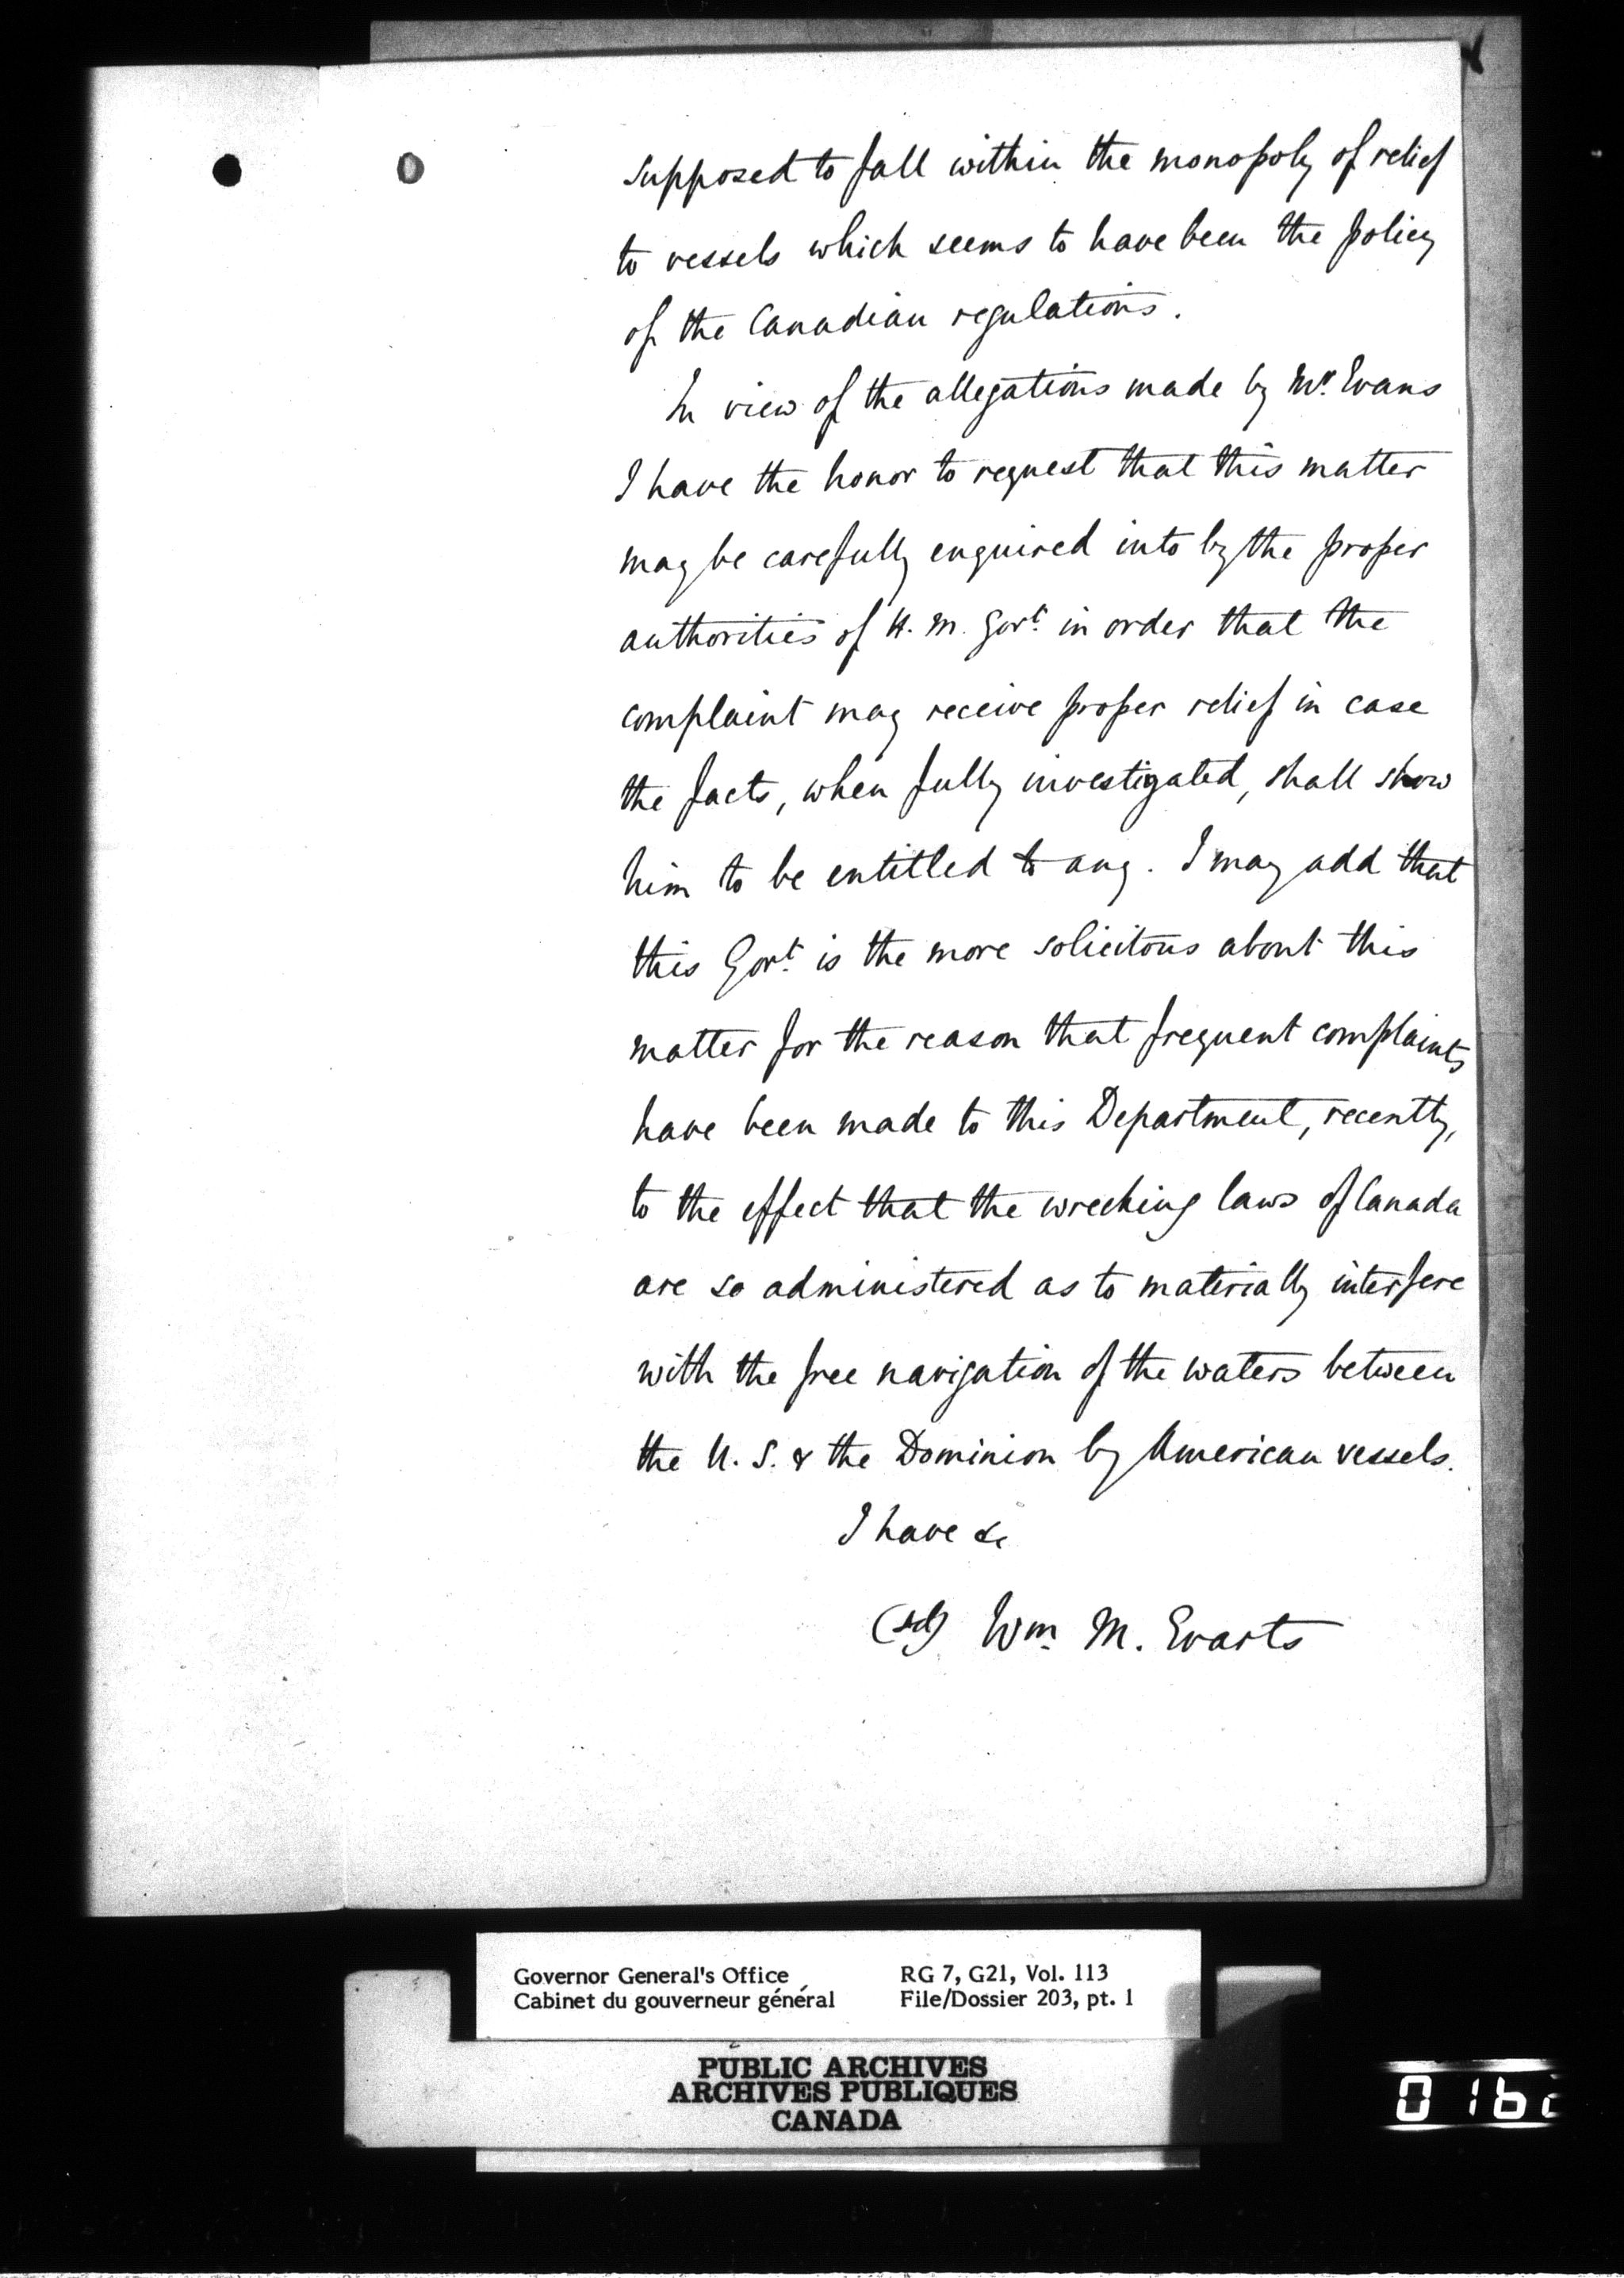 supposed to fall within the monopoly of relief
to vessels which seems to have been the policy
of the Canadian regulations.
In view of the allegations made by Mr. Evans
I have the honor to request that this matter
may be carefully enquired into by the proper
authorities of H. M. Govt. in order that the
complaint may receive proper relief in case
the facts, when fully investigated, shall show
him to be entitled to any. I may add that
this Govt. is the more solicitous about this
matter for the reason that frequent complaints
have been made to this Department, recently,
to the effect that the wrecking laws of Canada
are so administered as to materially interfere
with the free navigation of the waters between
the U. S. & the Dominion by American vessels.
I have &c
(sd) Wm. M. Evarts
Governor General's Office
Cabinet du gouverneur général
RG 7, G21, Vol. 113
File/Dossier 203, pt. 1
PUBLIC ARCHIVES
ARCHIVES PUBLIQUES
CANADA